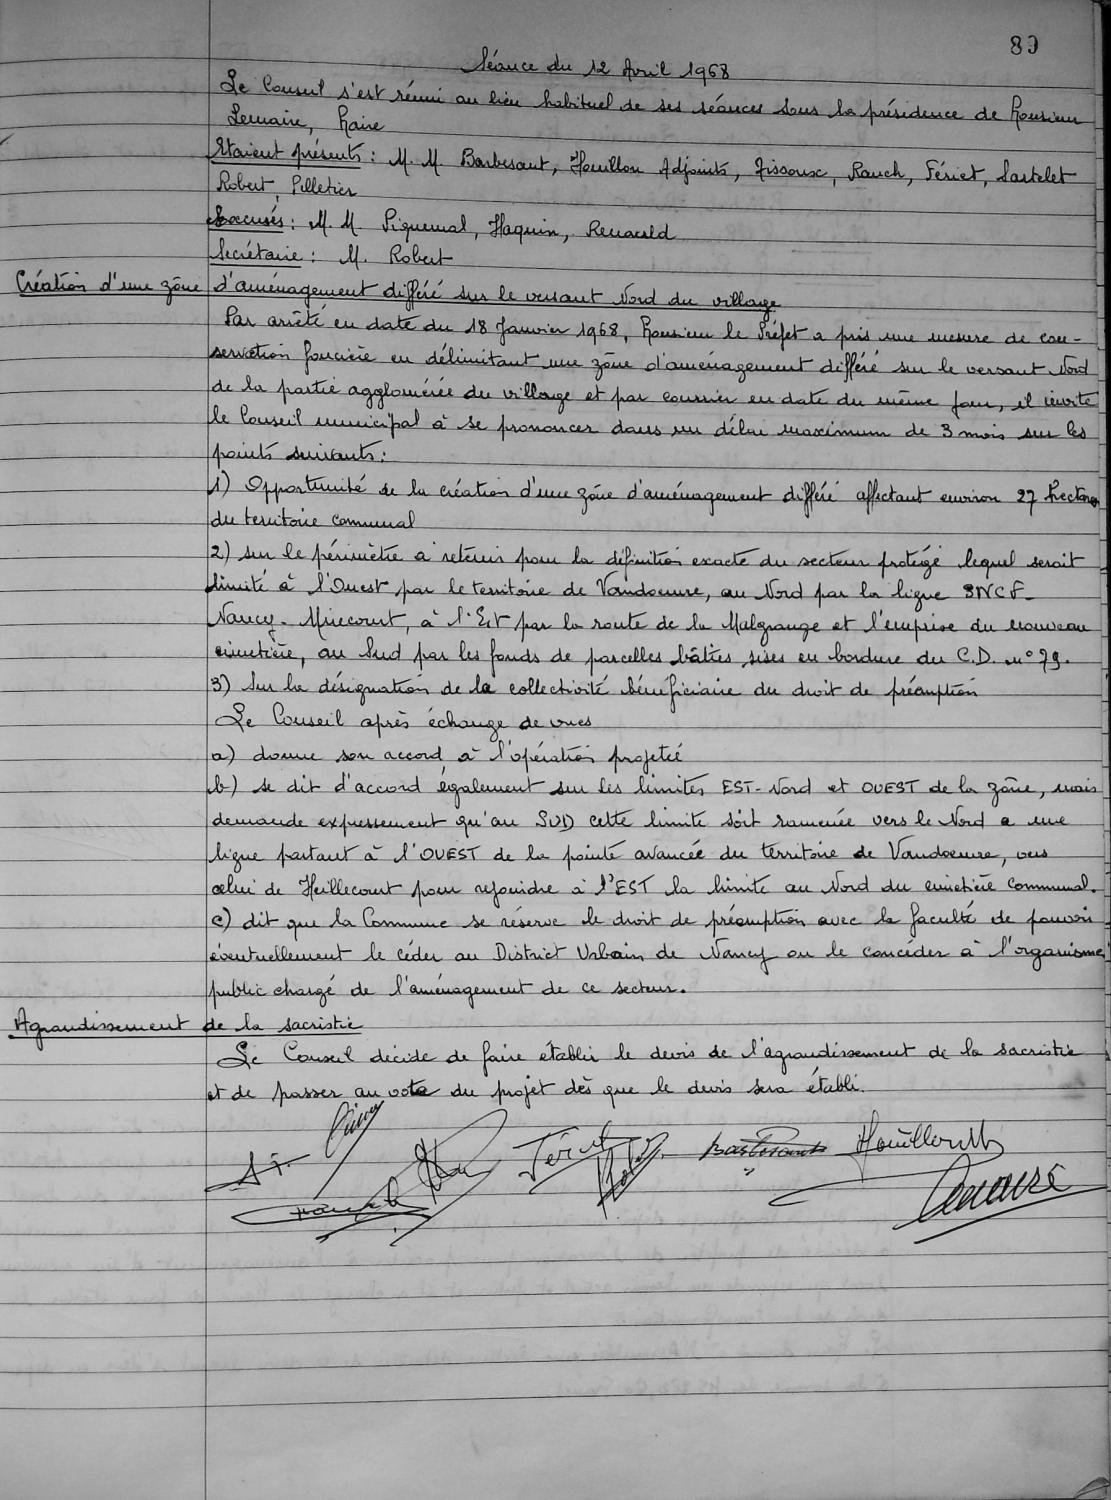 89
Séance du 12 Avril 1968
Le Conseil s'est réuni au lieu habituel de ses séances sous la présidence de Monsieur
Lemaire, Maire
Etaient présents : M. M. Barbesant, Houillon Adjoints, Tissoux, Rauch, Fériet, Sartelet
Robert, Pelletier
Excusés : M. M. Piquemal, Haquin, Renauld
Secrétaire : M. Robert
Création d'une zône d'aménagement différé sur le versant Nord du village
Par arrêté en date du 18 Janvier 1968, Monsieur le Préfet a pris une mesure de con-
servation foncière en délimitant une zône d'aménagement différé sur le versant Nord
de la partie agglomérée du village et par courrier en date du même jour, il invite
le Conseil municipal à se prononcer dans un délai maximum de 3 mois sur les
points suivants :
1) Opportunité de la création d'une zône d'aménagement différé affectant environ 27 hectares
du territoire communal
2) sur le périmètre à retenir pour la définition exacte du secteur protégé lequel serait
limité à l'Ouest par le territoire de Vandoeuvre, au Nord par la ligne SNCF-
Nancy-Mirecourt, à l'Est par la route de la Malgrange et l'emprise du nouveau
cimetière, au Sud par les fonds de parcelles bâties sises en bordure du C.D. n° 79.
3) Sur la désignation de la collectivité bénéficiaire du droit de préemption
Le Conseil après échange de vues
a) donne son accord à l'opération projetée
b) se dit d'accord également sur les limites EST-Nord et OUEST de la zône, mais
demande expressement qu'au SUD cette limite soit ramenée vers le Nord a une
ligne partant à l'OUEST de la pointe avancée du territoire de Vandoeuvre, vers
celui de Heillecourt pour rejoindre à l'EST la limite au Nord du cimetière communal.
c) dit que la Commune se réserve le droit de préemption avec la faculté de pouvoir
éventuellement le céder au District Urbain de Nancy ou le concéder à l'organisme
public chargé de l'aménagement de ce secteur.
Agrandissement de la sacristie
Le Conseil décide de faire établir le devis de l'agrandissement de la sacristie
et de passer au vote du projet dès que le devis sera établi.
Fériet Barbesant Houillon
Lemaire